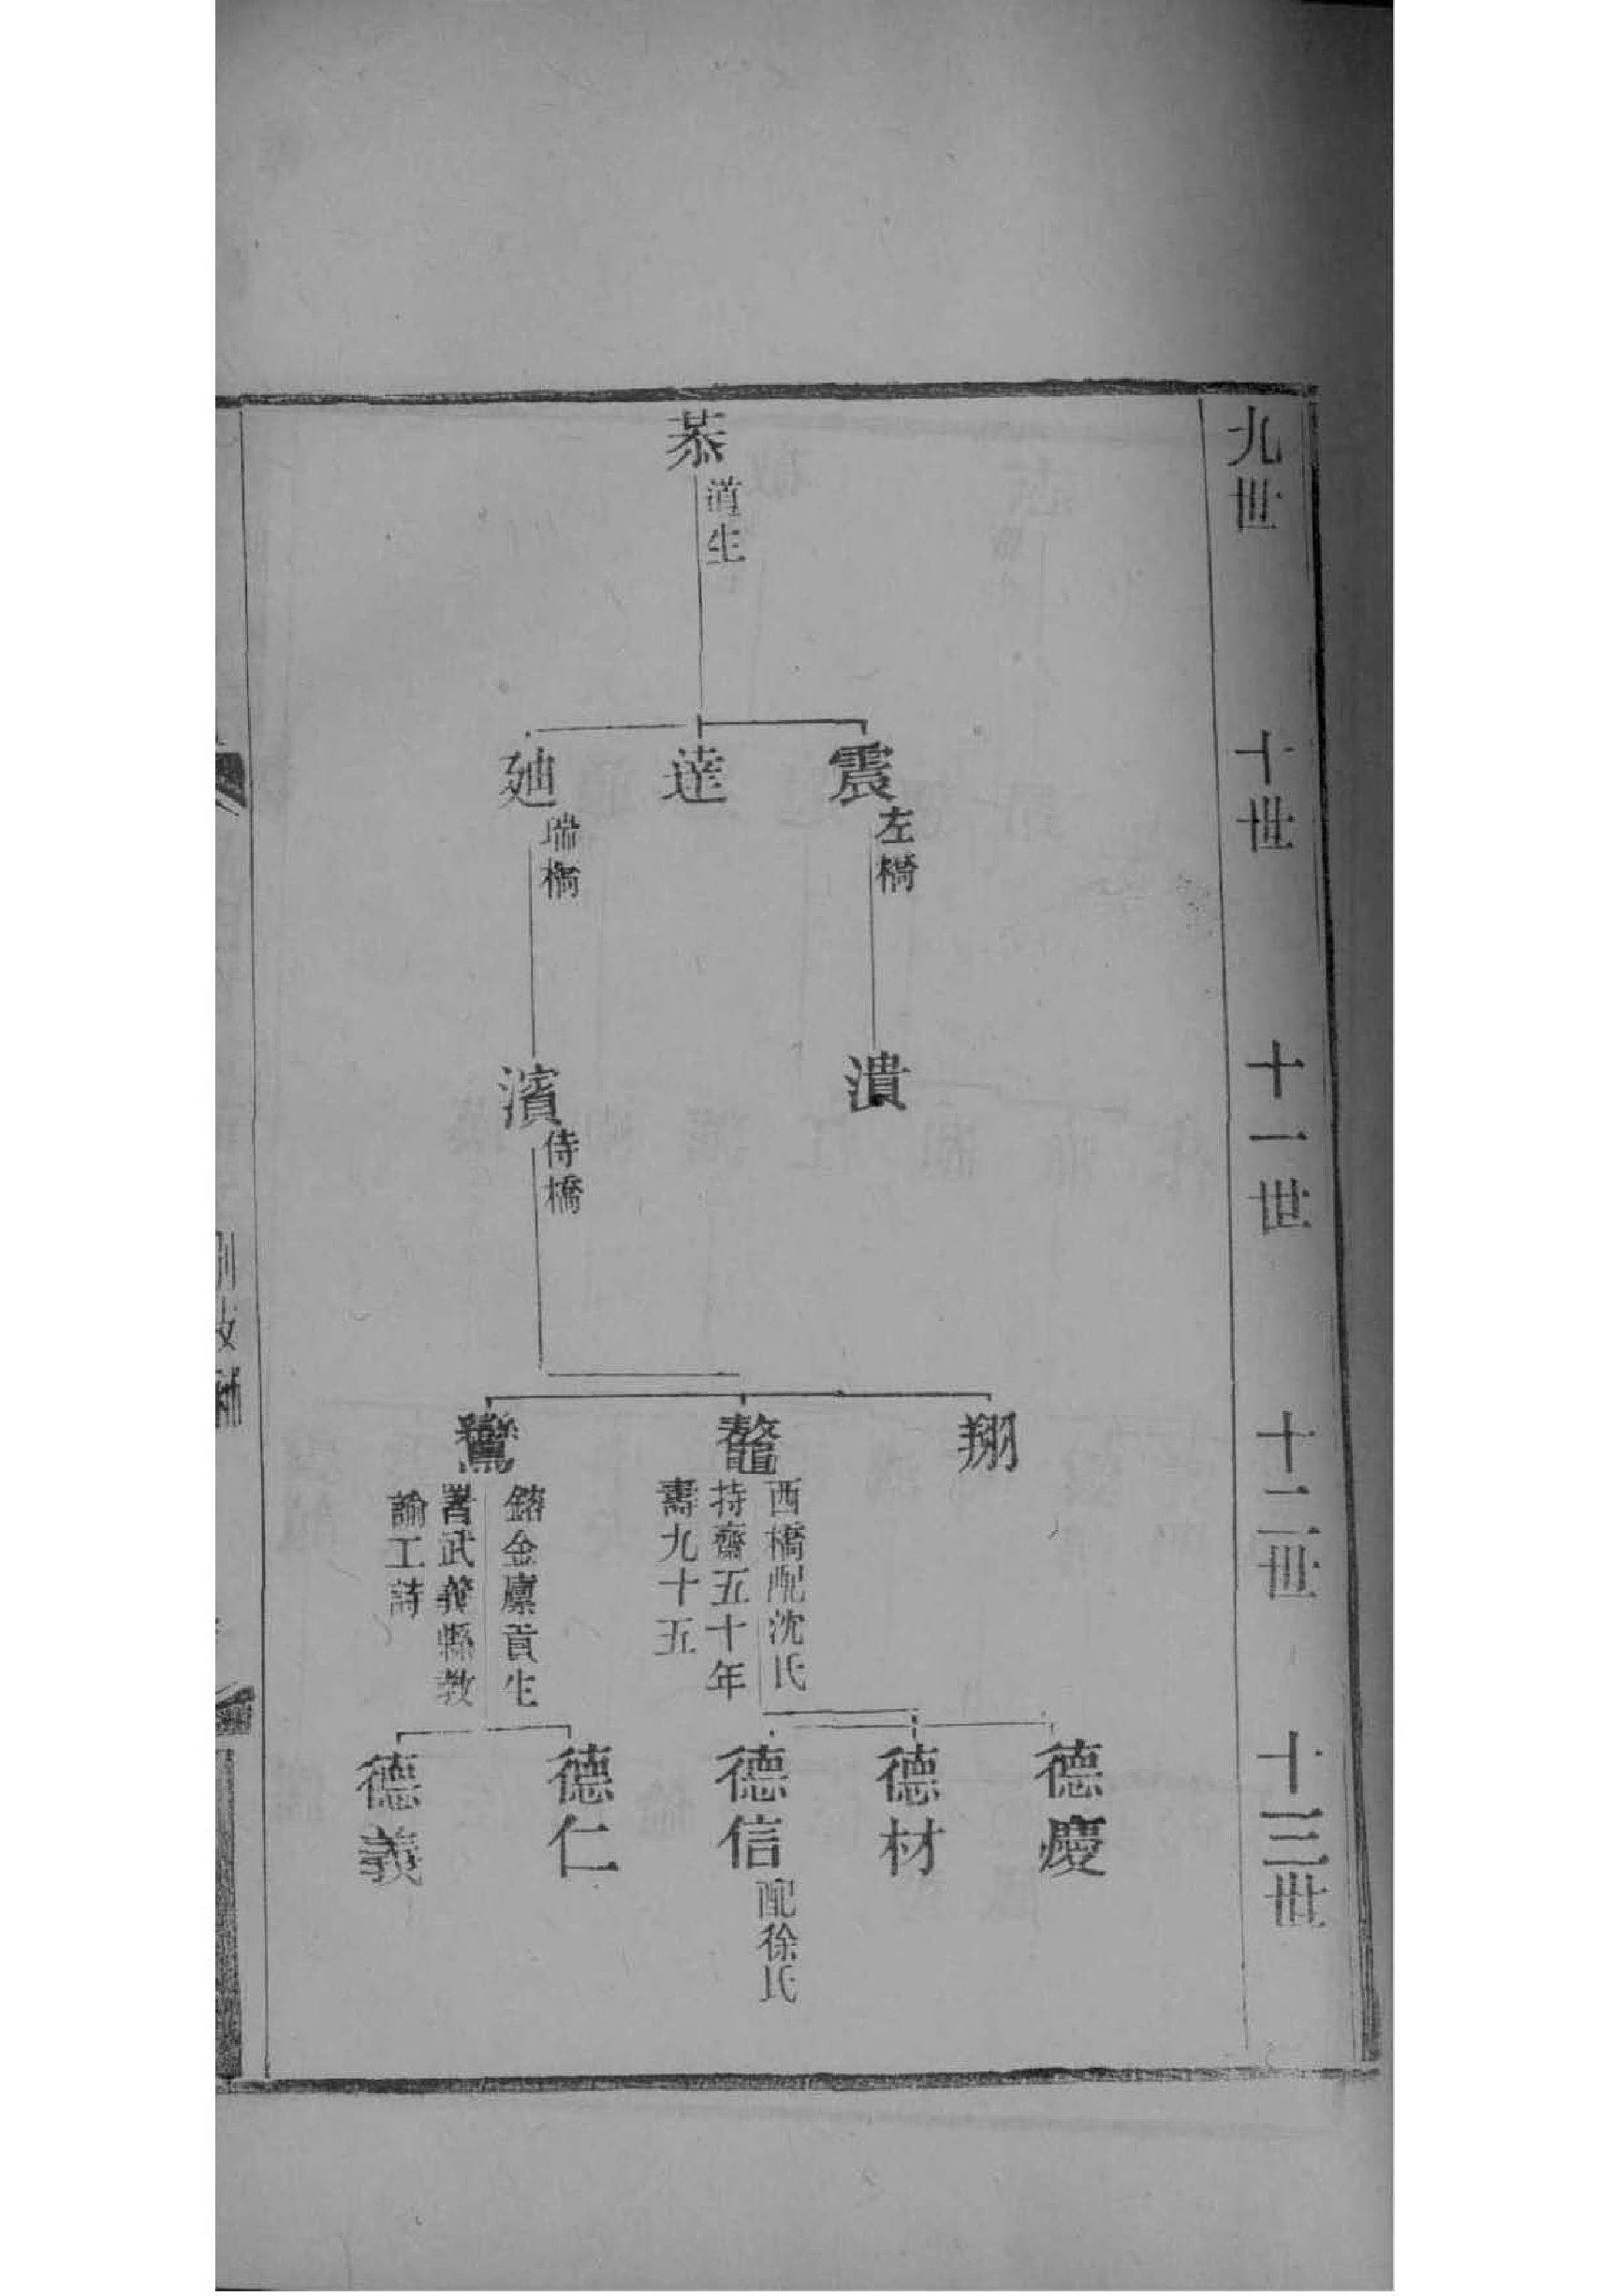 九世
十世
十一世
十二世
十三世
恭
道生
震
左橋
達
廸
瑞橋
濆
濱
侍橋
翔
鼇
西橋配沈氏
持齋五十年
壽九十五
鸞
鎔金廩貢生
署武義縣教
諭工詩
德慶
德材
德信
配徐氏
德仁
德義